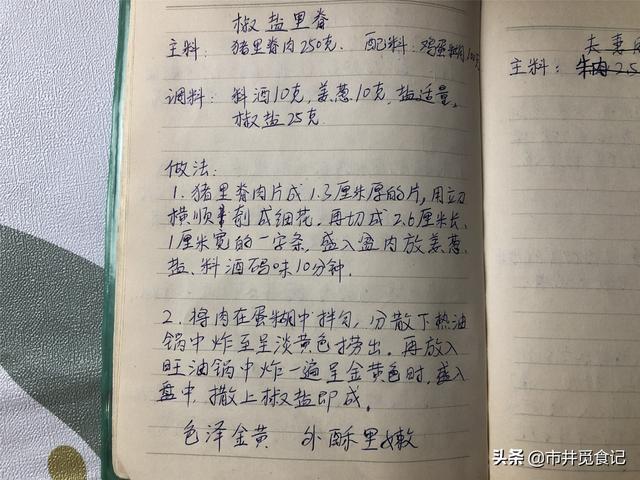 椒盐里脊
主料: 猪里脊肉250克. 配料: 鸡蛋糊
调料: 料酒10克, 姜葱10克, 盐适量,
椒盐25克
做法:
1. 猪里脊肉片成1.3厘米厚的片, 用立刀
横顺剞成细花. 再切成2.6厘米长、
1厘米宽的一字条, 盛入盆内放姜葱、
盐、料酒码味10分钟.
2. 将肉在蛋糊中拌匀, 分散下热油
锅中炸至呈淡黄色捞出. 再放入
旺油锅中炸一遍呈金黄色时, 盛入
盘中, 撒上椒盐即成。
色泽金黄 外酥里嫩
夫妻
主料: 牛肉25
头条 @市井觅食记